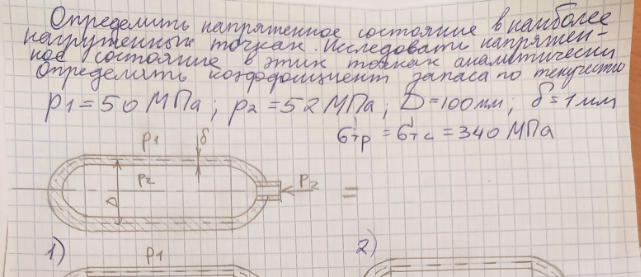 Определить напряженное состояние в наиболее
нагруженных точках. Исследовать напряжен-
ное состояние в этих точках аналитически
Определить коэффициент запаса по текучести
p1 = 50 МПа; p2 = 52 МПа; D = 100 мм, δ = 1 мм
σтр = σтс = 340 МПа
p1 δ
p2 D p2 =
1) p1 2)